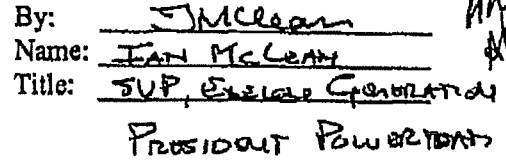 By: IMcLean
Name: IAN MCLEAN
Title: SVP, EXELON GENERATION
PRESIDENT POWERTEAM